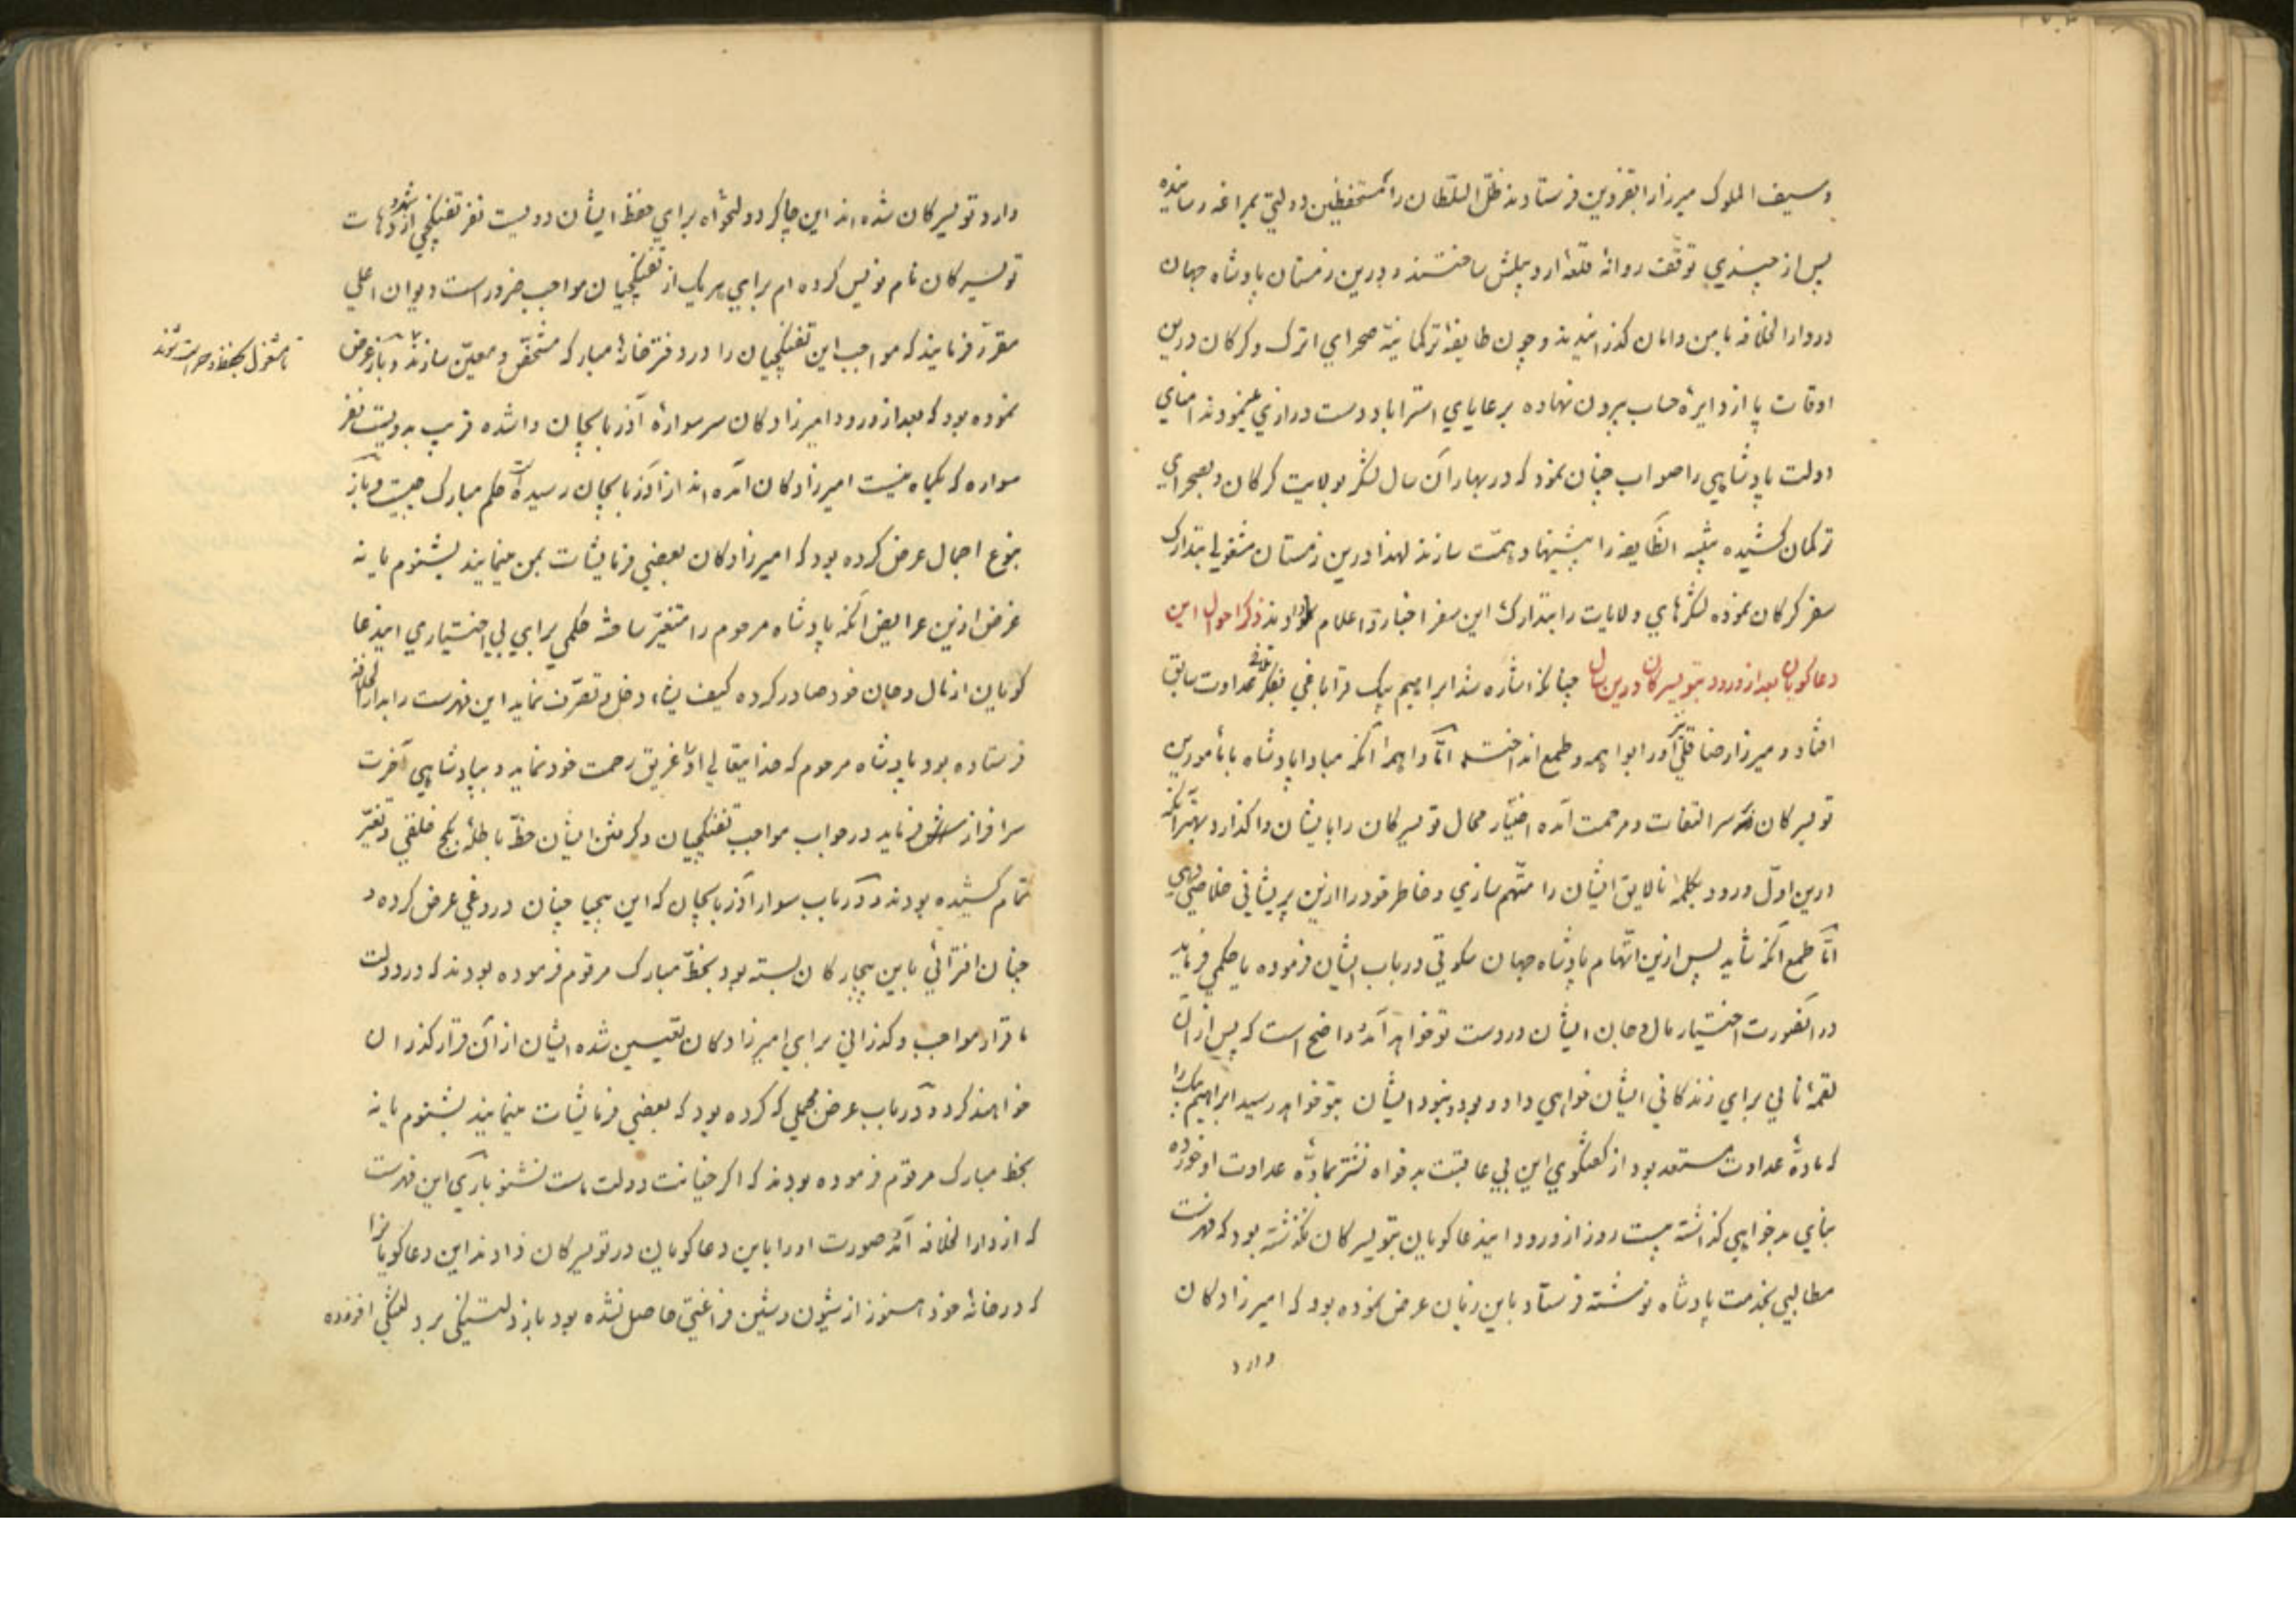 و سیف الملوک میرزا را بقزوین فرستادند ظل السلطان را مستحفظین دولتی بمراغه رسانیده
پس از چندی توقف روانهٔ قلعهٔ اردبیلش ساختند و درین زمستان پادشاه جهان
در دارالخلافه با من و امان گذرانیدند و چون طایفهٔ ترکمانیهٔ صحرای اترک و کرکان درین
اوقات پا از دایرهٔ حساب بیرون نهاده برعایای استراباد دست درازی مینمودند امنای
دولت پادشاهی را صواب چنان نمود که در بهار آن سال لشکر بولایت کرکان و بصحرای
ترکمان کشیده تنبیه انطایفه را پیشنهاد همت سازند لهذا درین زمستان مشغول بتدارک
سفر کرکان نموده لشکرهای ولایات را بتدارک این سفر اخبار و اعلام دادند ذکر احوال این
دعاکویان بعد از ورود بتویسرکان درین سال چنانکه اشاره شد ابراهیم بیک قراباغی بفکر تلافی عداوت سابق
افتاد و میرزا رضا قلی را بواهمه و طمع انداخت اما واهمه آنکه مبادا پادشاه با مامورین
تویسرکان بر سر التفات و مرحمت آمده اختیار محال تویسرکان را بایشان واگذارد بهتر آنکه
درین اول ورود بکلمهٔ نالایق ایشان را متهم سازی و خاطر خود را ازین پریشانی خلاصی دهی
اما طمع آنکه شاید پس ازین اتهام پادشاه جهان سکوتی در باب ایشان فرموده یا حکمی فرماید
در انصورت اختیار مال و جان ایشان در دست تو خواهد آمد و واضح است که پس از آن
لقمهٔ نانی برای زندکانی ایشان خواهی داد و بود و نبود ایشان بتو خواهد رسید ابراهیم بیک را
که مادهٔ عداوت مستعد بود از کفتکوی این بی عاقبت بدخواه نشتر بمادهٔ عداوت او خورده
بنای بدخواهی گذاشته بیست روز از ورود ایندعاکویان بتویسرکان نگذشته بود که فهرست
مطالبی بخدمت پادشاه نوشته فرستاد باین زبان عرض نموده بود که امیرزادکان
وارد
وارد تویسرکان شده اند این چاکر دولتخواه برای حفظ ایشان دویست نفر تفنکچی از شهر و دهات
تویسرکان نام نویس کرده ام برای هر یک از تفنکچیان مواجب ضرور است دیوان اعلی
مقرر فرمایند که مواجب این تفنکچیان را در دفترخانهٔ مبارکه مشخص و معین سازند و باز عرض
تا مشغول بحفظ و حراست شوند
نموده بود که بعد از ورود امیرزادکان سر سوارهٔ آذربایجان وا شده قریب بدویست نفر
سواره که یکماه نیست امیرزادکان آمده اند از آذربایجان رسیده حکم مبارک چیست و باز
بنوع اجمال عرض کرده بود که امیرزادکان بعضی فرمایشات بمن مینمایند بشنوم یا نه
غرض ازین عرایض آنکه پادشاه مرحوم را متغیر ساخته حکمی برای بی اختیاری ایندعا
کویان از مال و جان خود صادر کرده کیف یشاء دخل و تصرف نماید این فهرست را بدارالخلافه
فرستاده بود پادشاه مرحوم که خدایتعالی او را غریق رحمت خود نماید و بپادشاهی آخرت
سرافراز فرماید در جواب مواجب تفنکچیان و کرفتن ایشان خط باطله بکج خلقی و تغیر
تمام کشیده بودند و در باب سوار آذربایجان که این بیحیا چنان دروغی عرض کرده و
چنان افترائی باین بیچارکان بسته بود بخط مبارک مرقوم فرموده بودند که در دولت
ما قرار مواجب و گذرانی برای امیرزادکان تعیین شده ایشان از آن قرار گذران
خواهند کرد و در باب عرض مجملی که کرده بود که بعضی فرمایشات مینمایند بشنوم یا نه
بخط مبارک مرقوم فرموده بودند که اکر خیانت دولت ماست نشنو باری این فهرست
که از دارالخلافه آمد صورت او را باین دعاکویان در تویسرکان دادند این دعاکویانرا
که در خانهٔ خود هنوز از شیون و شین فراغتی حاصل نشده بود باز دلتنکی بر دلتنکی افزوده